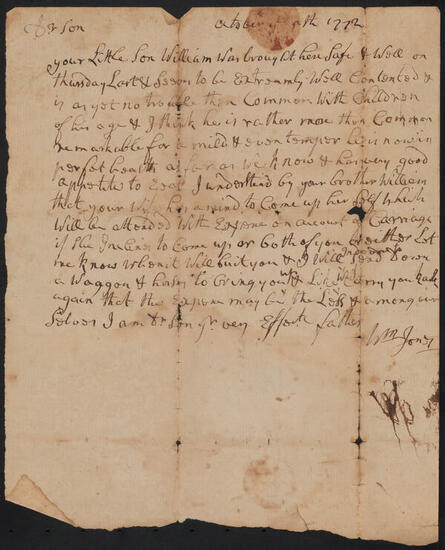 Dr Son
October 1772
your Little Son William Was brought here Safe & Well on
thursday Last & Seems to be Extreamly Well Contented &
is as yet no trouble then Common With Children
of his age & I think he is rather more then Common
remarkable for a mild & even temper he is now in
perfect health as far as We know & has very good
appetite to Eat I understand by your brother William
that your Wife has a mind to Come up her Self Which
Will be attended With Expence on account of Carriage
if She Inclines to Come up or both of you together Let
me know When it Will Suit you & I Will Send Down
a Waggon & horses to bring you & Carry you back
again that the Expence may be the Less & among our
Selves I am Dr Son yr very Affect Father
Wm Jones